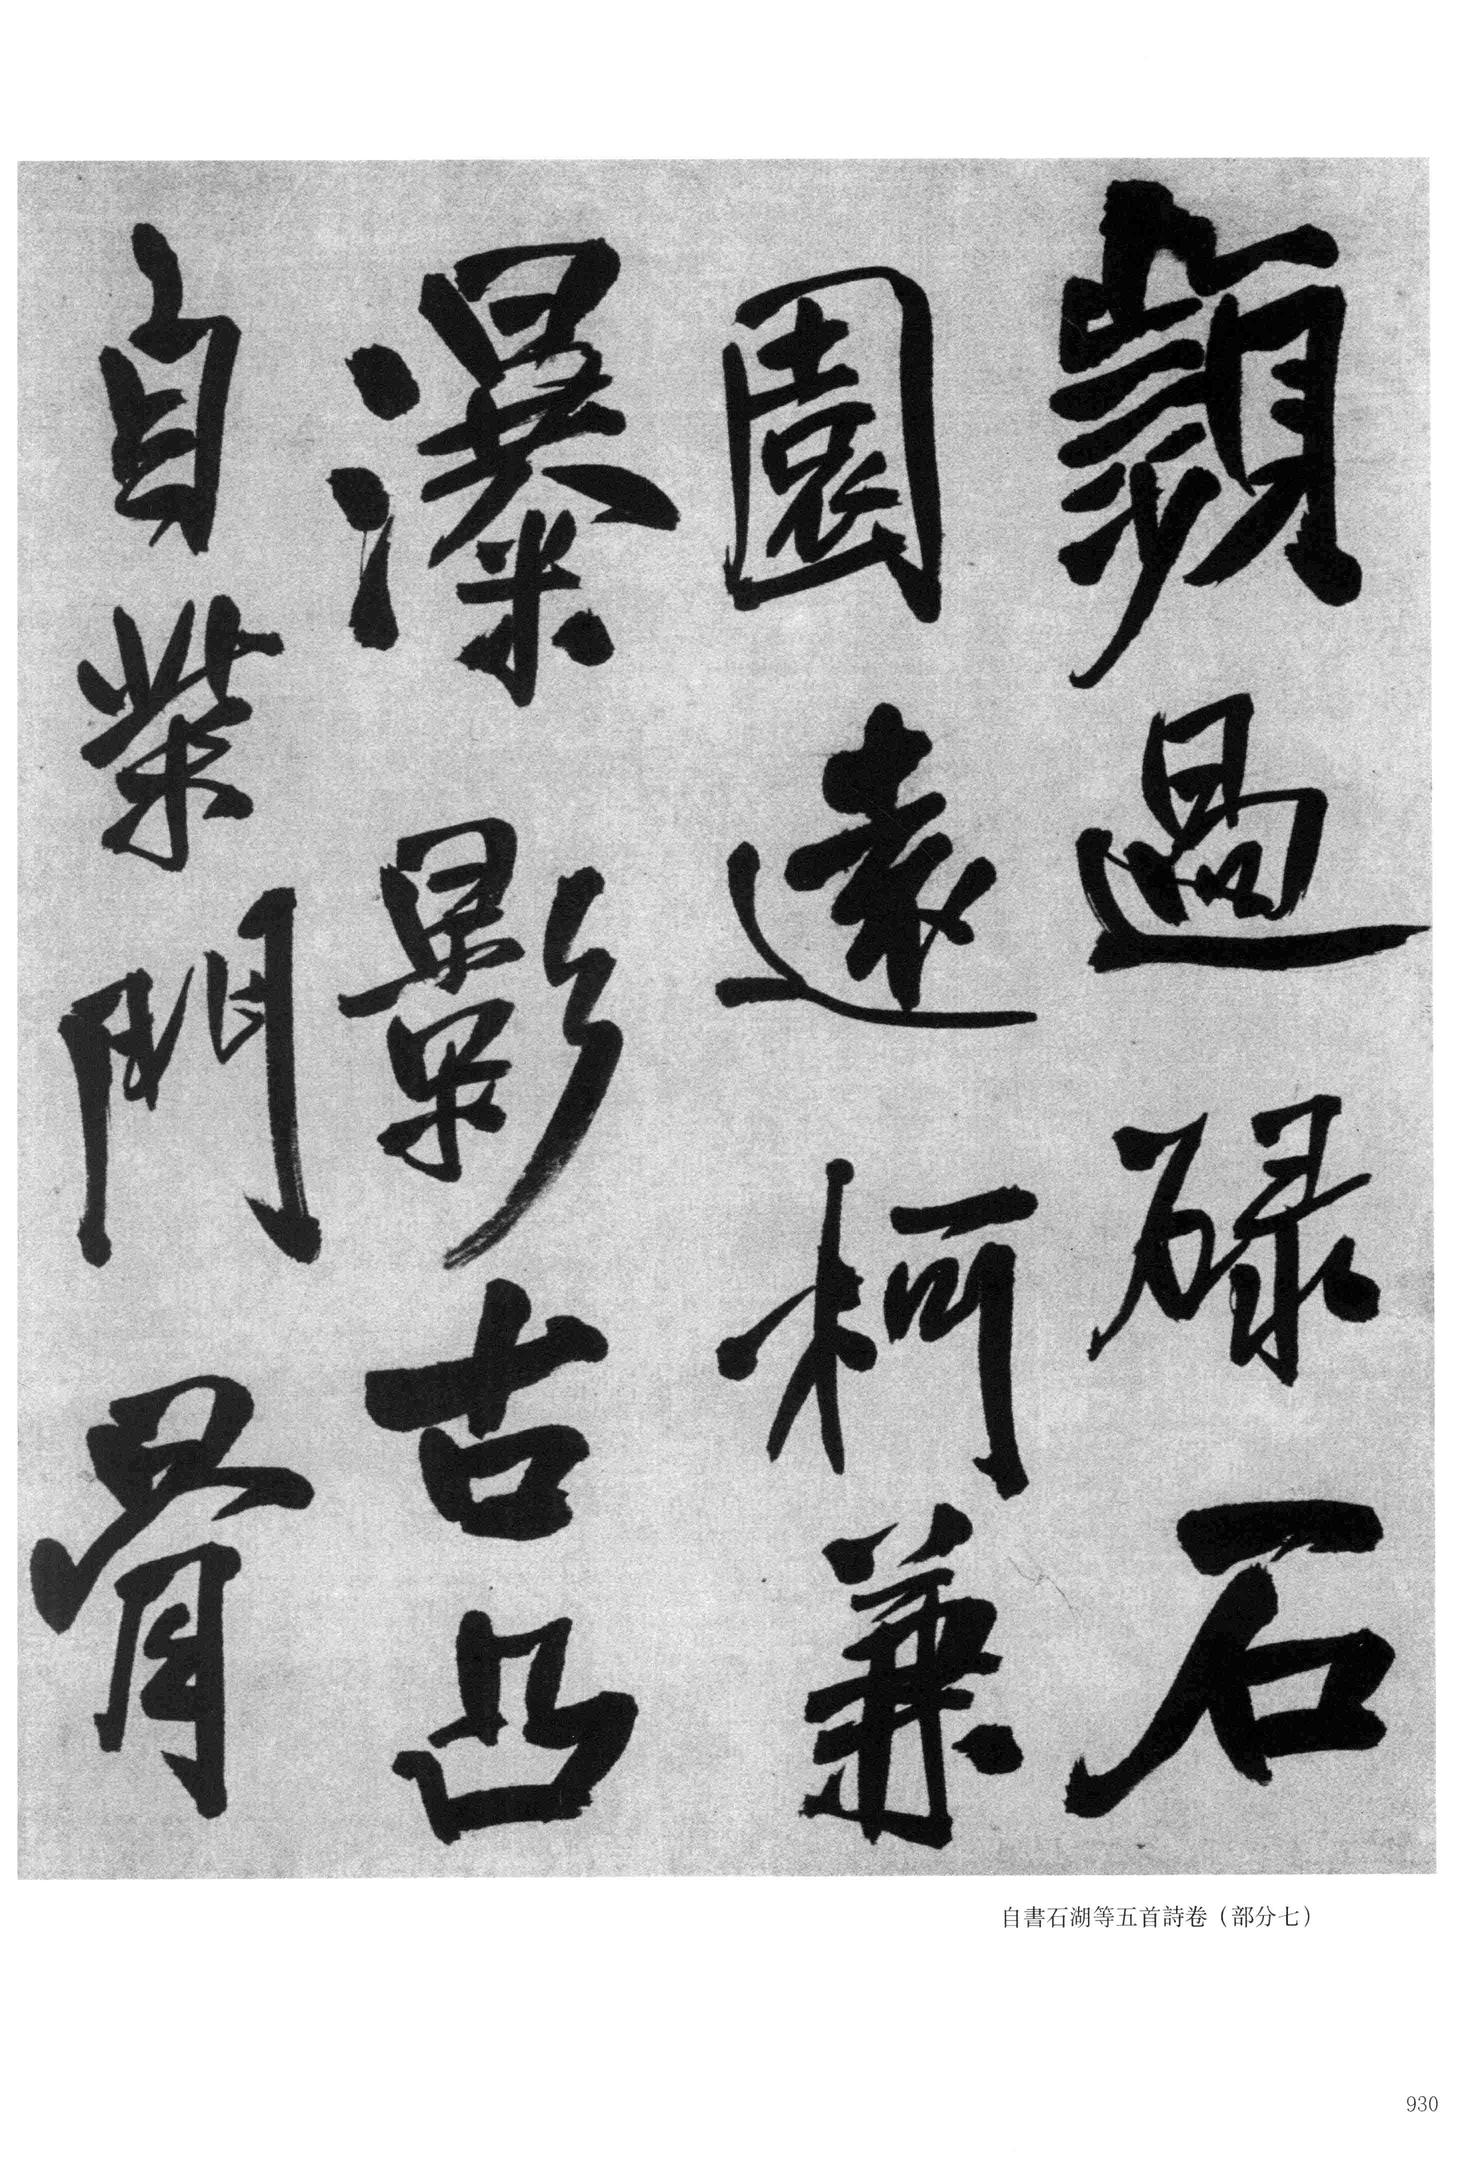 頻過碌石
園遠柯兼
瀑影古凸
自柴門骨
自書石湖等五首詩卷（部分七）
930